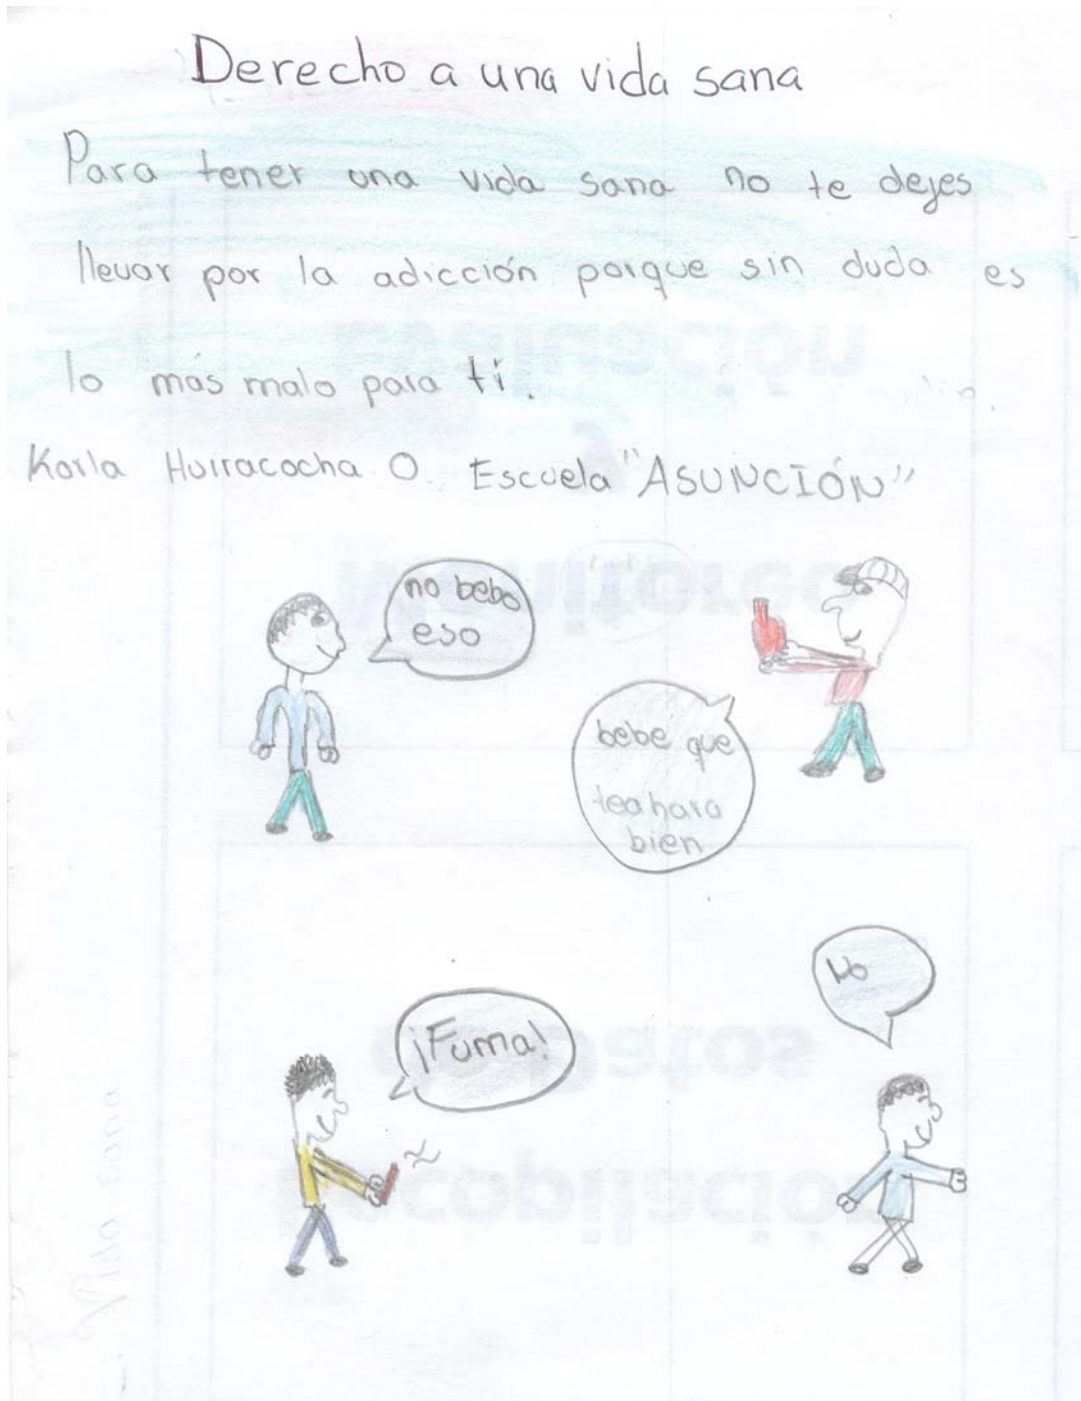 Derecho a una vida sana
Para tener una vida sana no te dejes
llevar por la adicción porque sin duda es
lo más malo para ti.
Karla Huiracocha O. Escuela "ASUNCIÓN"
no bebo
eso
bebe que
tea hara
bien
No
¡Fuma!
Vida sana